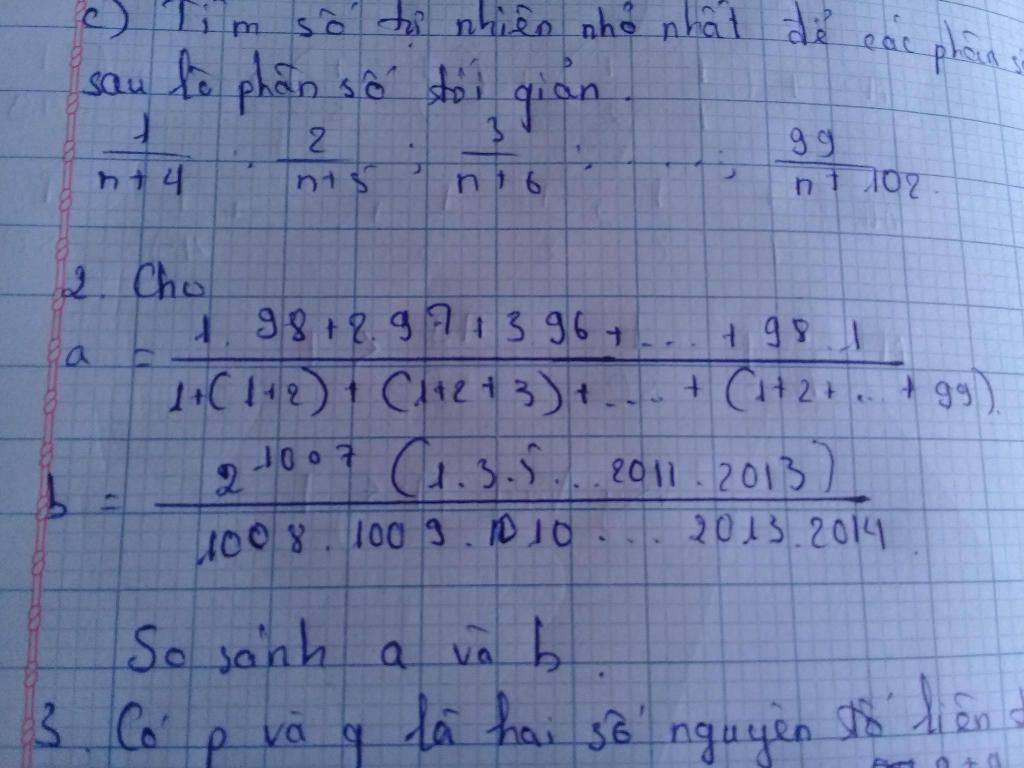 c) Tìm số tự nhiên nhỏ nhất để các phân số
sau là phân số tối giản.
1/(n+4) ; 2/(n+5) ; 3/(n+6) ; ....; 99/(n+102).
2. Cho
a = (1.98+2.97+3.96+...+98.1)/(1+(1+2)+(1+2+3)+....+(1+2+..+99)).
b = (2^1007 (1.3.5...2011.2013))/(1008.1009.1010...2013.2014)
So sánh a và b.
3. Có p và q là hai số nguyên tố liên